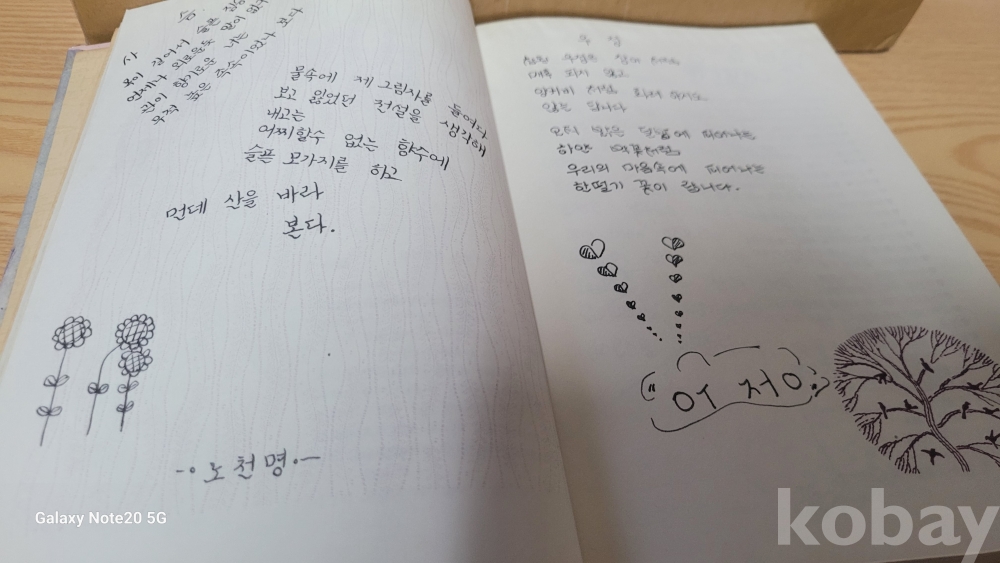 사 슴
목이 길어서 슬픈 짐승
언제나 외로운듯 말이 없다
관이 향기로운 너는
무척 높은 족속이었나 보다
물속에 제 그림자를 들여다
보고 잃었던 전설을 생각해
내고는
어찌할수 없는 향수에
슬픈 모가지를 하고
먼데 산을 바라
본다.
노천명
우정
우정은
않는 답니다
맑은 피어나는
하얀
우리의 마음속에 피어나는
한떨기 꽃이 랍니다.
Galaxy Note20 5G
kobay